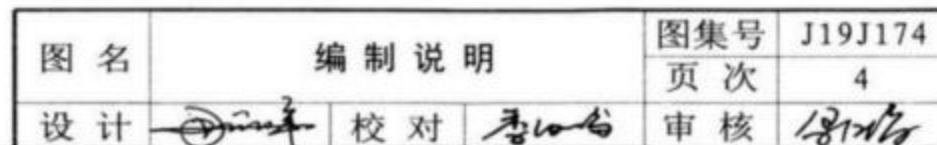 图名 编制说明 图集号 J19J174
页次 4
设计 校对 审核